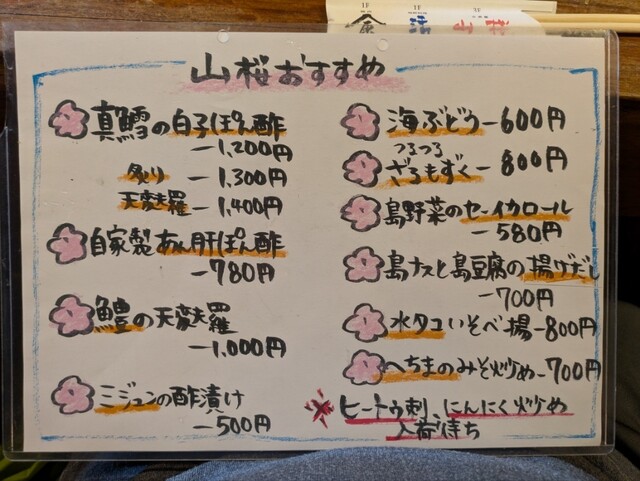 山桜おすすめ
真鱈の白子ぽん酢
ー1,200円
炙り ー1,300円
天婦羅 ー1,400円
自家製あん肝ぽん酢
ー780円
鱧の天婦羅
ー1,000円
ミジュンの酢漬け
ー500円
海ぶどうー600円
つるつる
ざるもずくー800円
島野菜のセーイカロール
ー580円
島ナスと島豆腐の揚げだし
ー700円
水タコいそべ揚ー800円
へちまのみそ炒めー700円
※ヒートゥ刺、にんにく炒め
入荷待ち